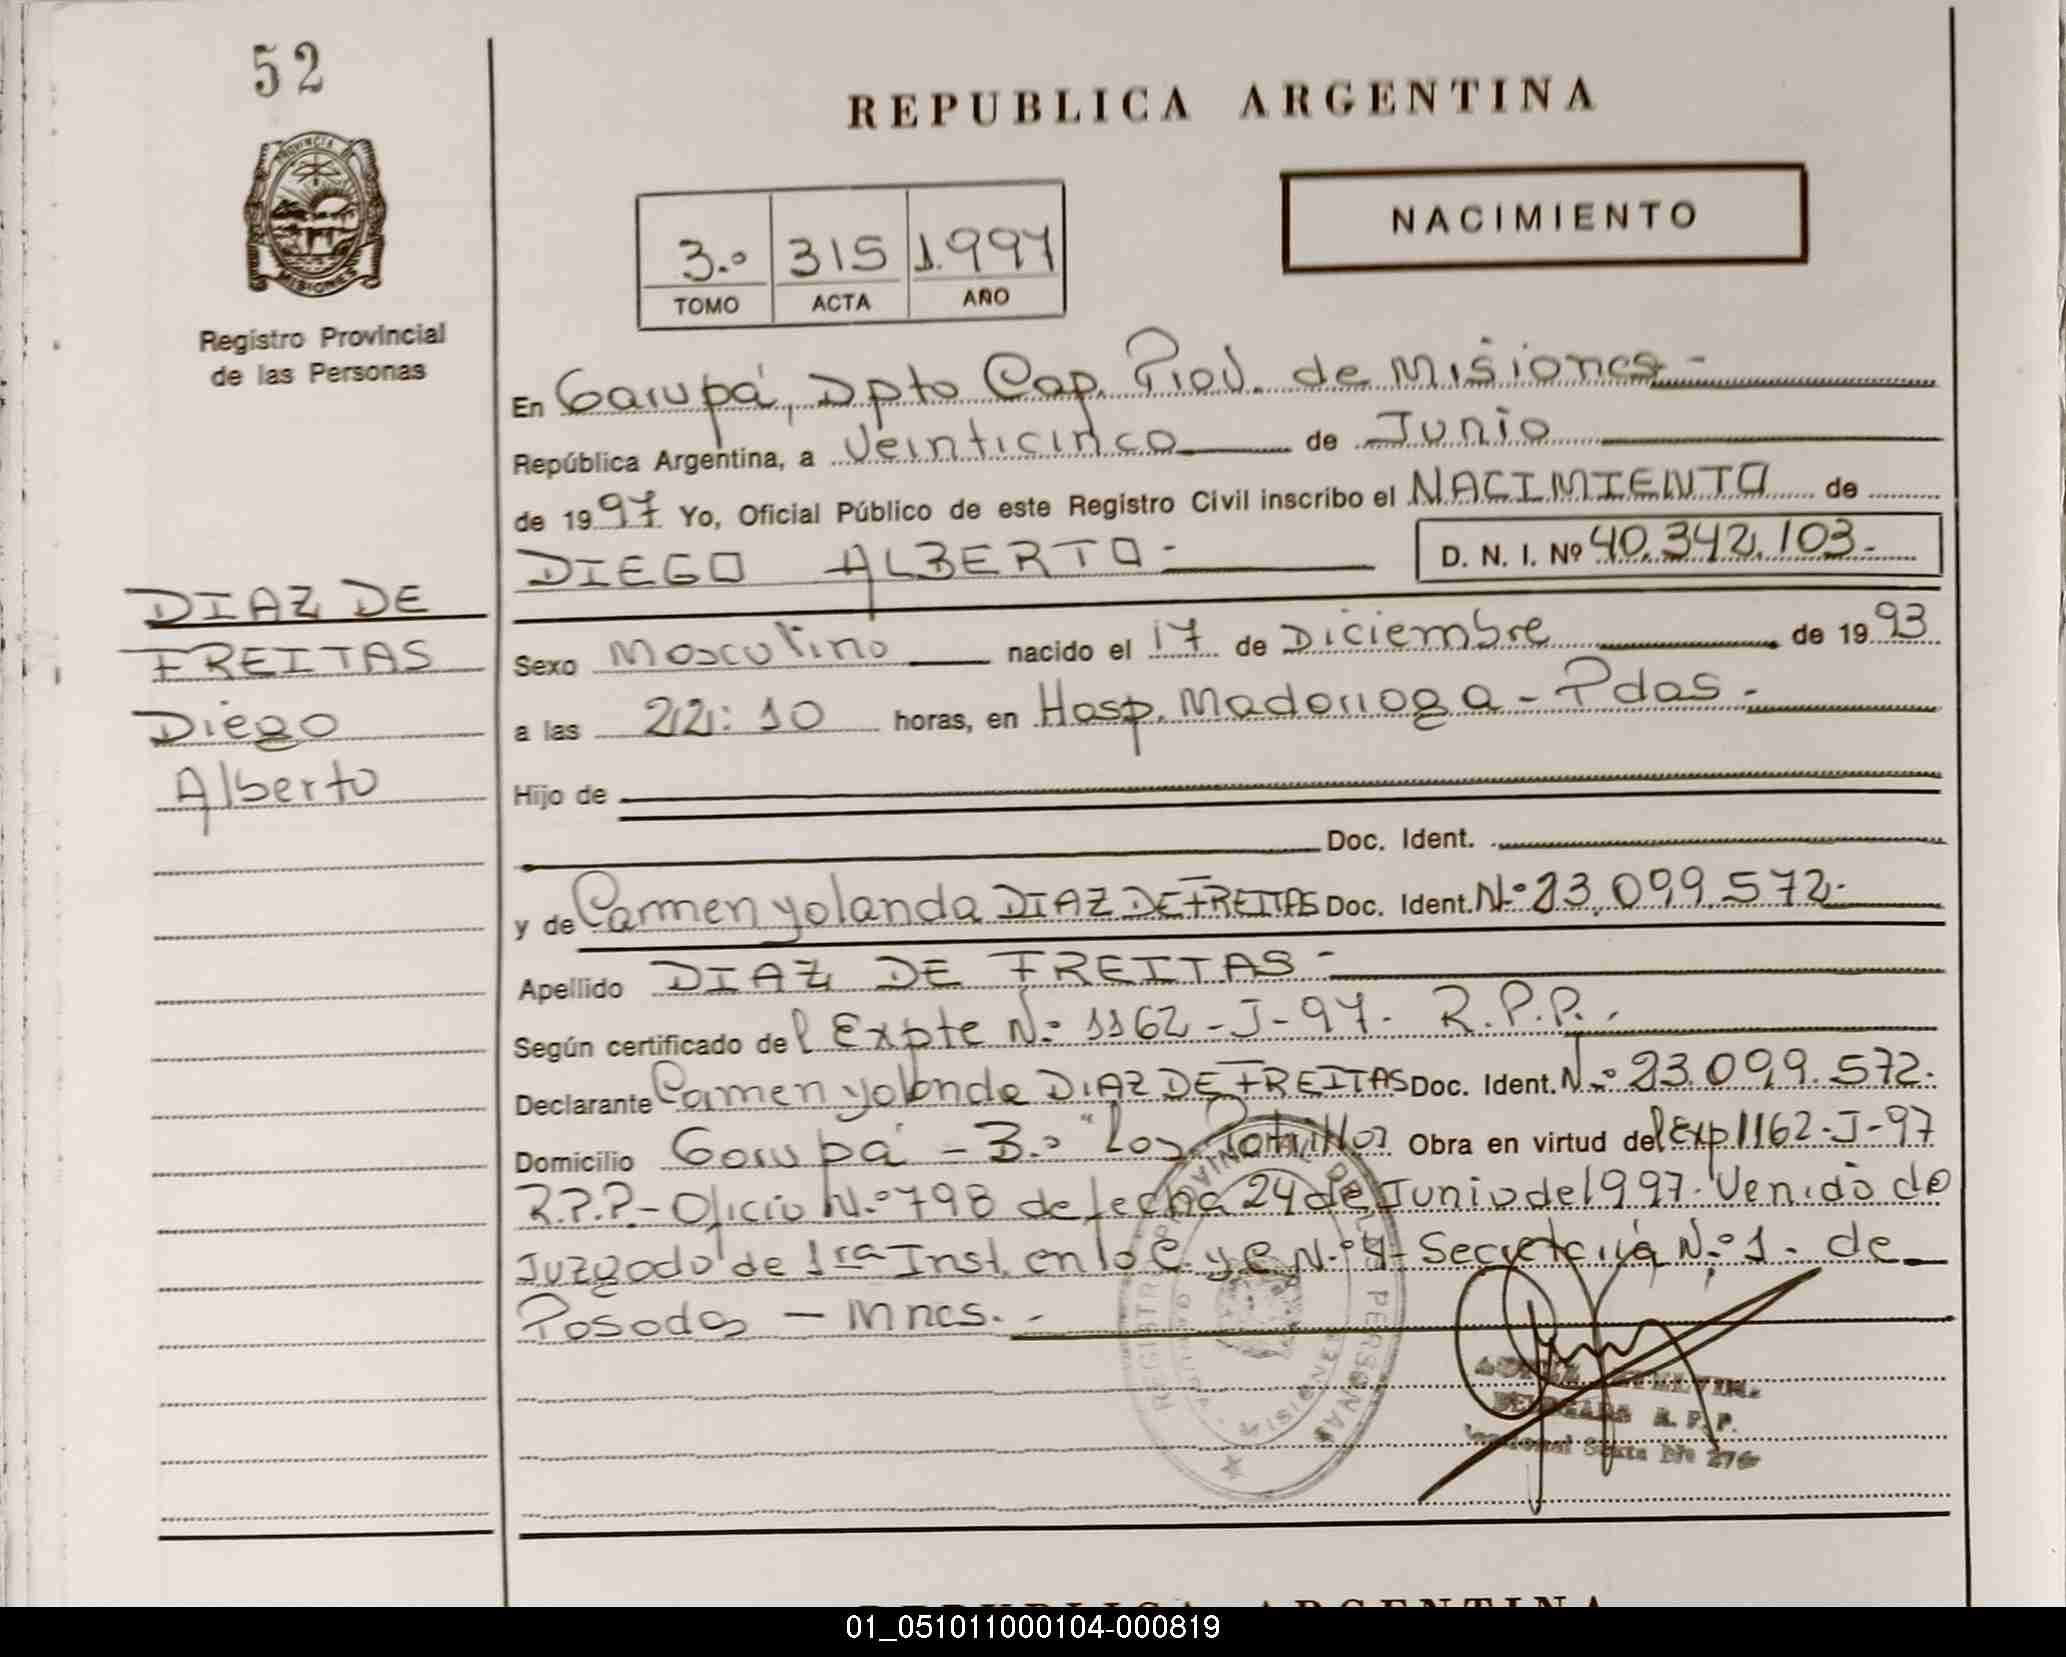 52
REPUBLICA ARGENTINA
PROVINCIA DE
MISIONES
Registro Provincial
de las Personas
3.º 315 1.997
TOMO ACTA AÑO
NACIMIENTO
En Garupá, Dpto Cap. Prov. de Misiones -
República Argentina, a Veinticinco de Junio
de 1997 Yo, Oficial Público de este Registro Civil inscribo el NACIMIENTO de
DIEGO ALBERTO - D. N. I. Nº 40.342.103.-
DIAZ DE
FREITAS
Diego
Alberto
Sexo Masculino nacido el 17 de Diciembre de 1993
a las 22:10 horas, en Hosp. Madariaga - Pdas -
Hijo de
Doc. Ident.
y de Carmen yolanda DIAZ DE FREITAS Doc. Ident. Nº 23.099.572.-
Apellido DIAZ DE FREITAS -
Según certificado del Expte Nº 1162-J-97. R.P.P..
Declarante Carmen yolanda DIAZ DE FREITAS Doc. Ident. Nº 23.099.572.
Domicilio Garupá - Bº "Los Potrillos Obra en virtud del Exp 1162-J-97
R.P.P.- Oficio Nº 798 de fecha 24 de Junio del 1997. Venido de
Juzgado de 1ra Inst. en lo C. y C Nº 4 - Secretaría Nº 1. de
Posadas - Mnes. -
REGISTRO PROVINCIAL DE LAS PERSONAS
MISIONES
R. P. P.
REPUBLICA ARGENTINA
01_051011000104-000819